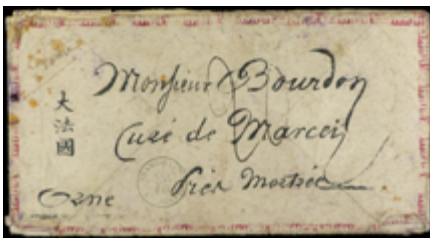 Monsieur Bourdon
Curé de Marcei
Près Mortrée
Orne
大法國